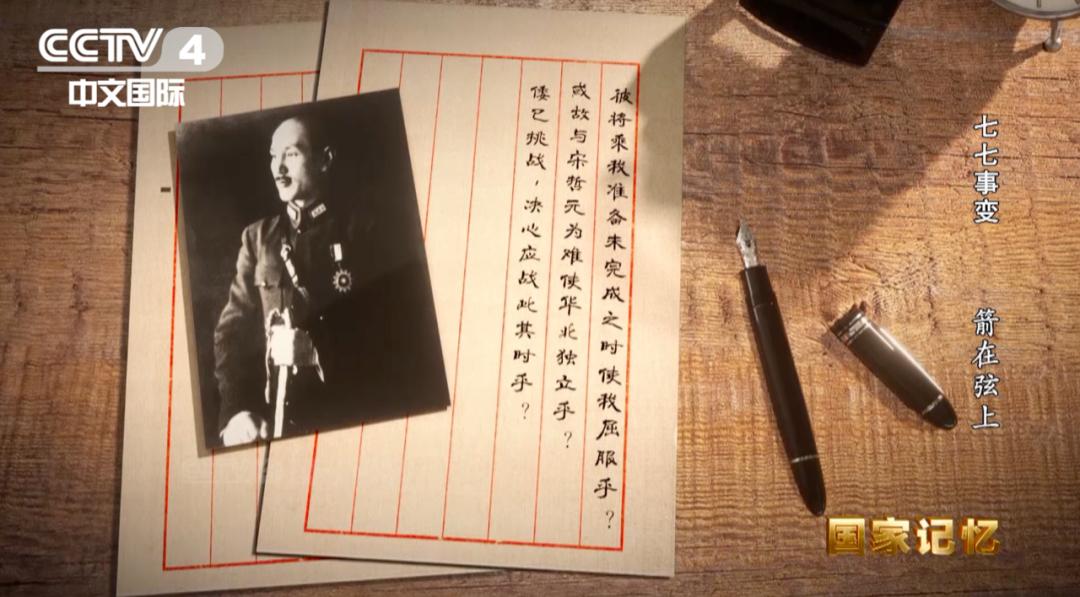 CCTV 4
中文国际
彼将乘我准备未完成之时使我屈服乎？
或故与宋哲元为难使华北独立乎？
倭已挑战，决心应战此其时乎？
七七事变
箭在弦上
国家记忆